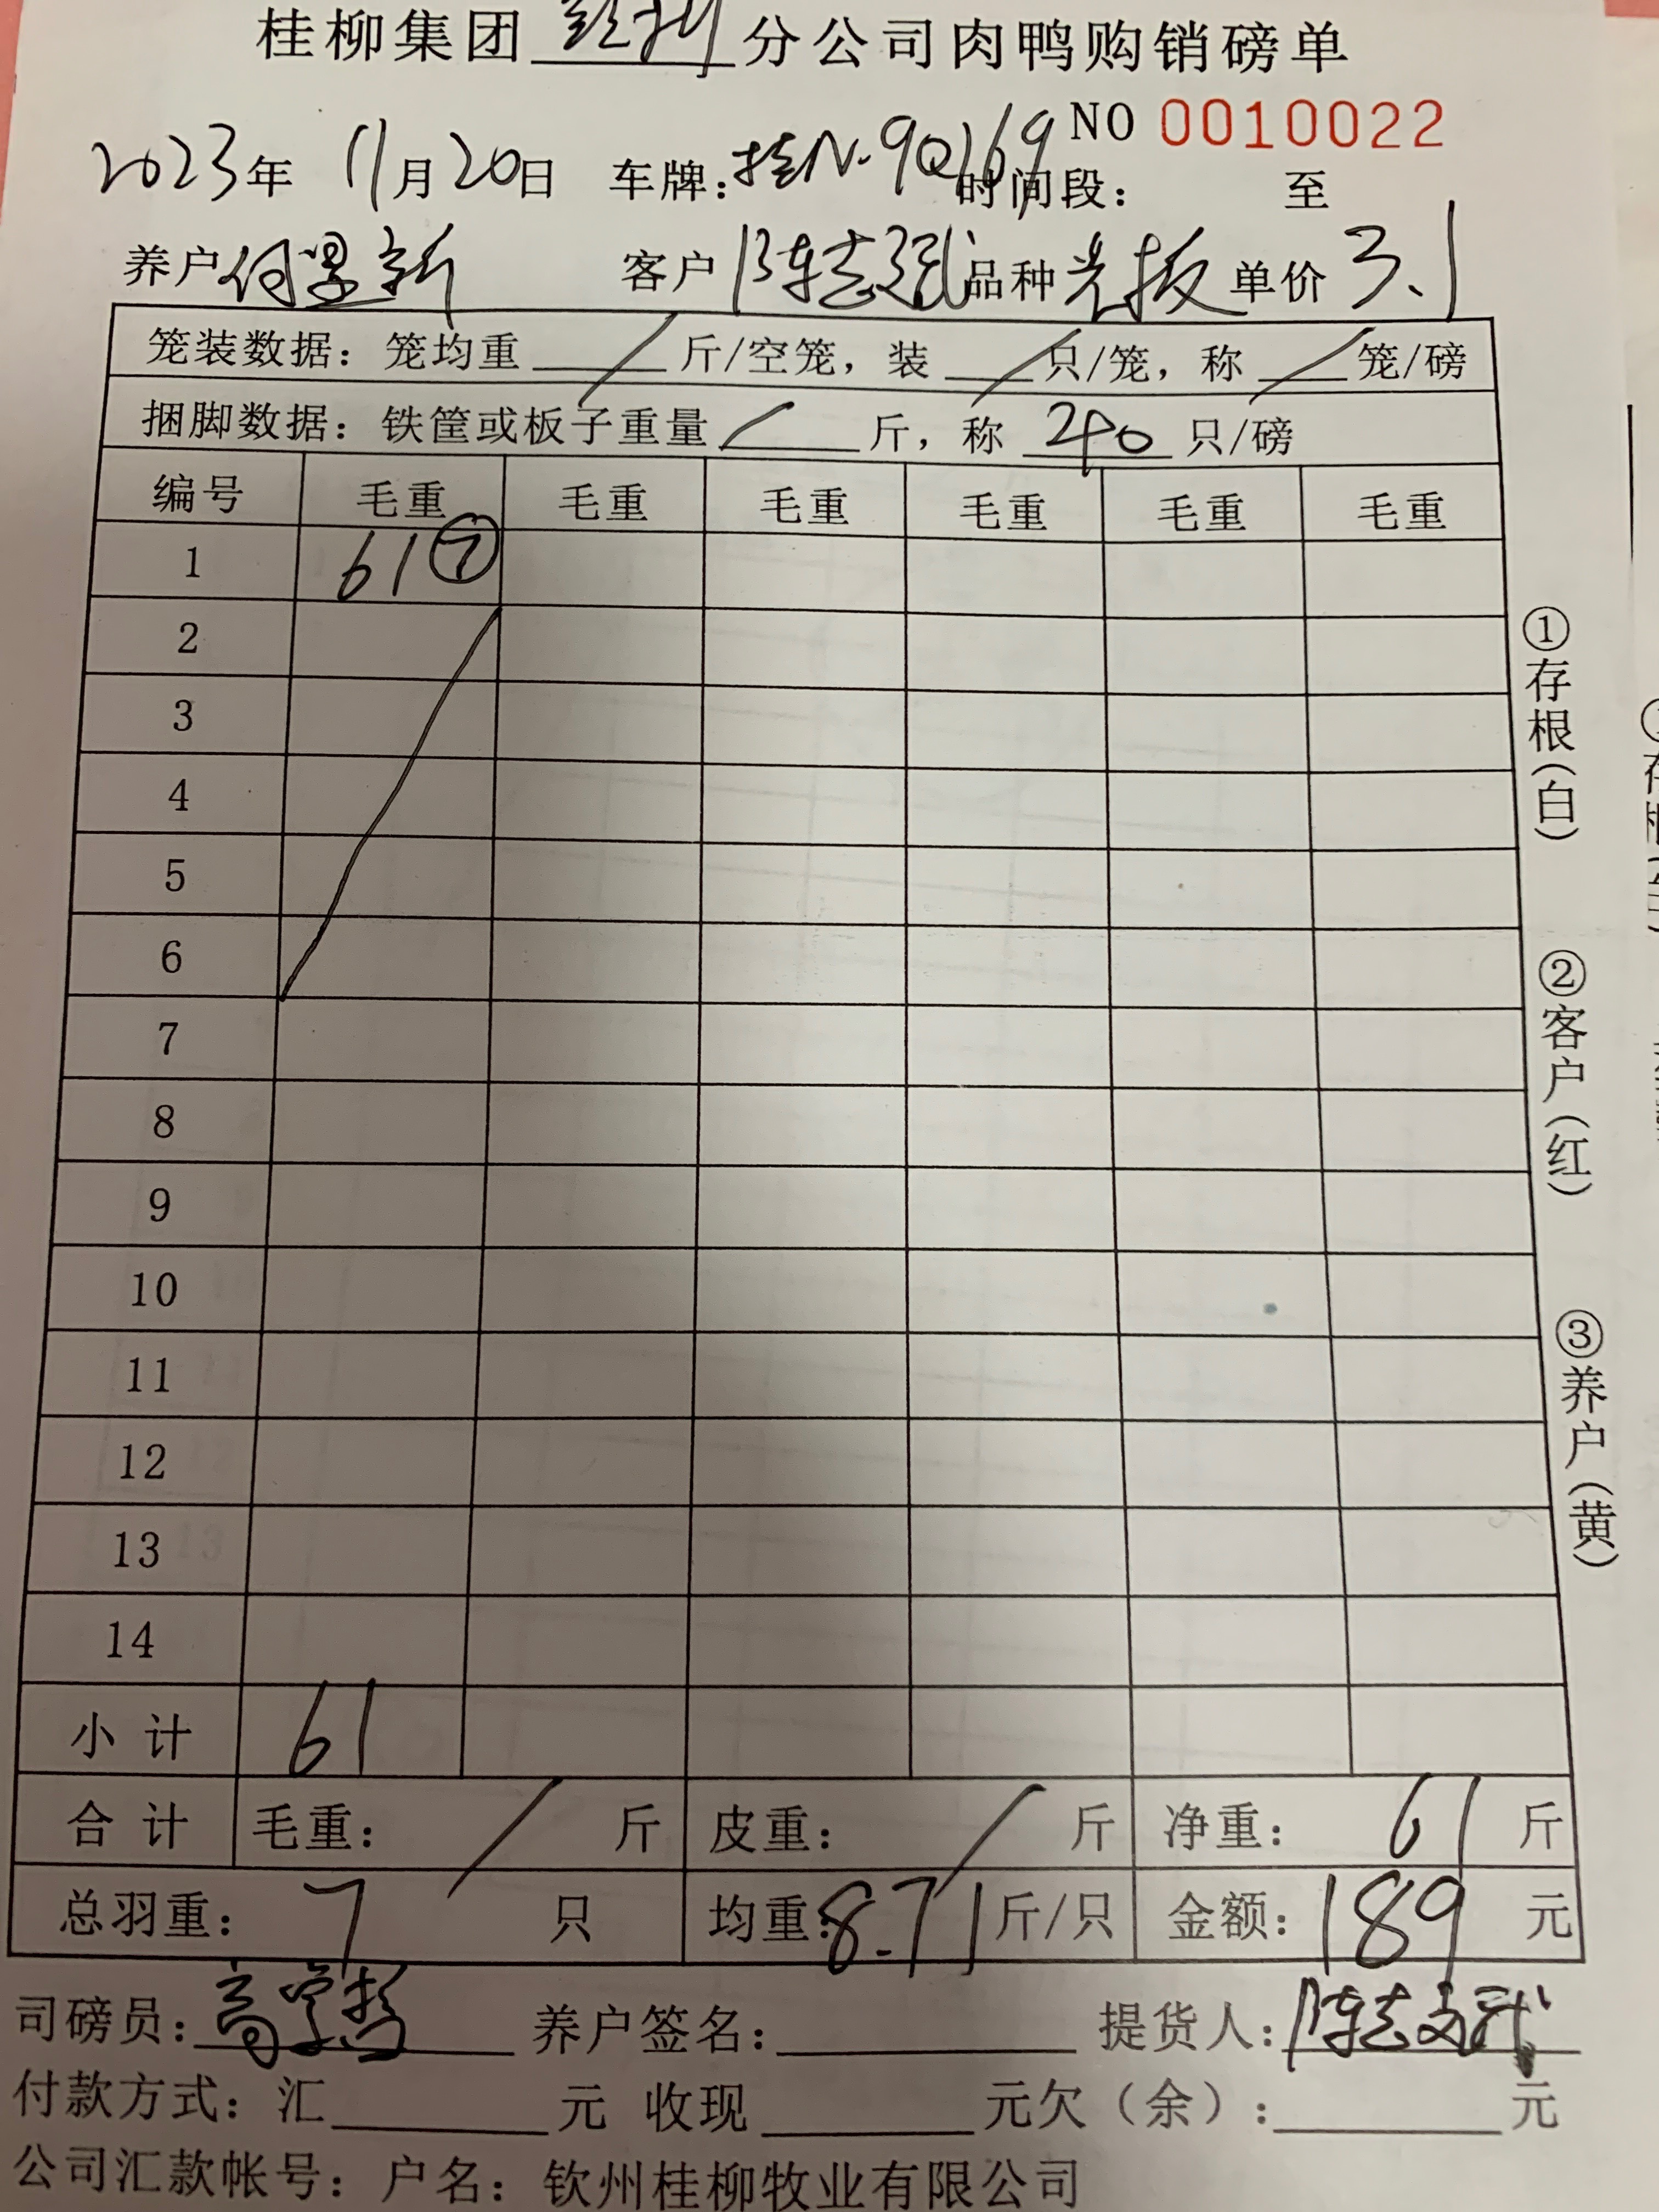 桂柳集团 分公司肉鸭购销磅单
NO 0010022
2023年 11月20日 车牌:桂N·9Q169 时间段: 至
养户 付 新 客户 陈志 品种 光板 单价 3.1
笼装数据: 笼均重 / 斤/空笼, 装 / 只/笼, 称 / 笼/磅
捆脚数据: 铁筐或板子重量 / 斤, 称 240 只/磅
编号 毛重 毛重 毛重 毛重 毛重 毛重
1 61 ⑦
2
3
4
5
6
7
8
9
10
11
12
13
14
小计 61
合计 毛重: / 斤 皮重: / 斤 净重: 61 斤
总羽重: 7 只 均重: 8.71 斤/只 金额: 189 元
司磅员: 高学 养户签名: 提货人: 陈志
付款方式: 汇 元 收现 元欠(余): 元
公司汇款帐号: 户名: 钦州桂柳牧业有限公司
①存根(白)
②客户(红)
③养户(黄)